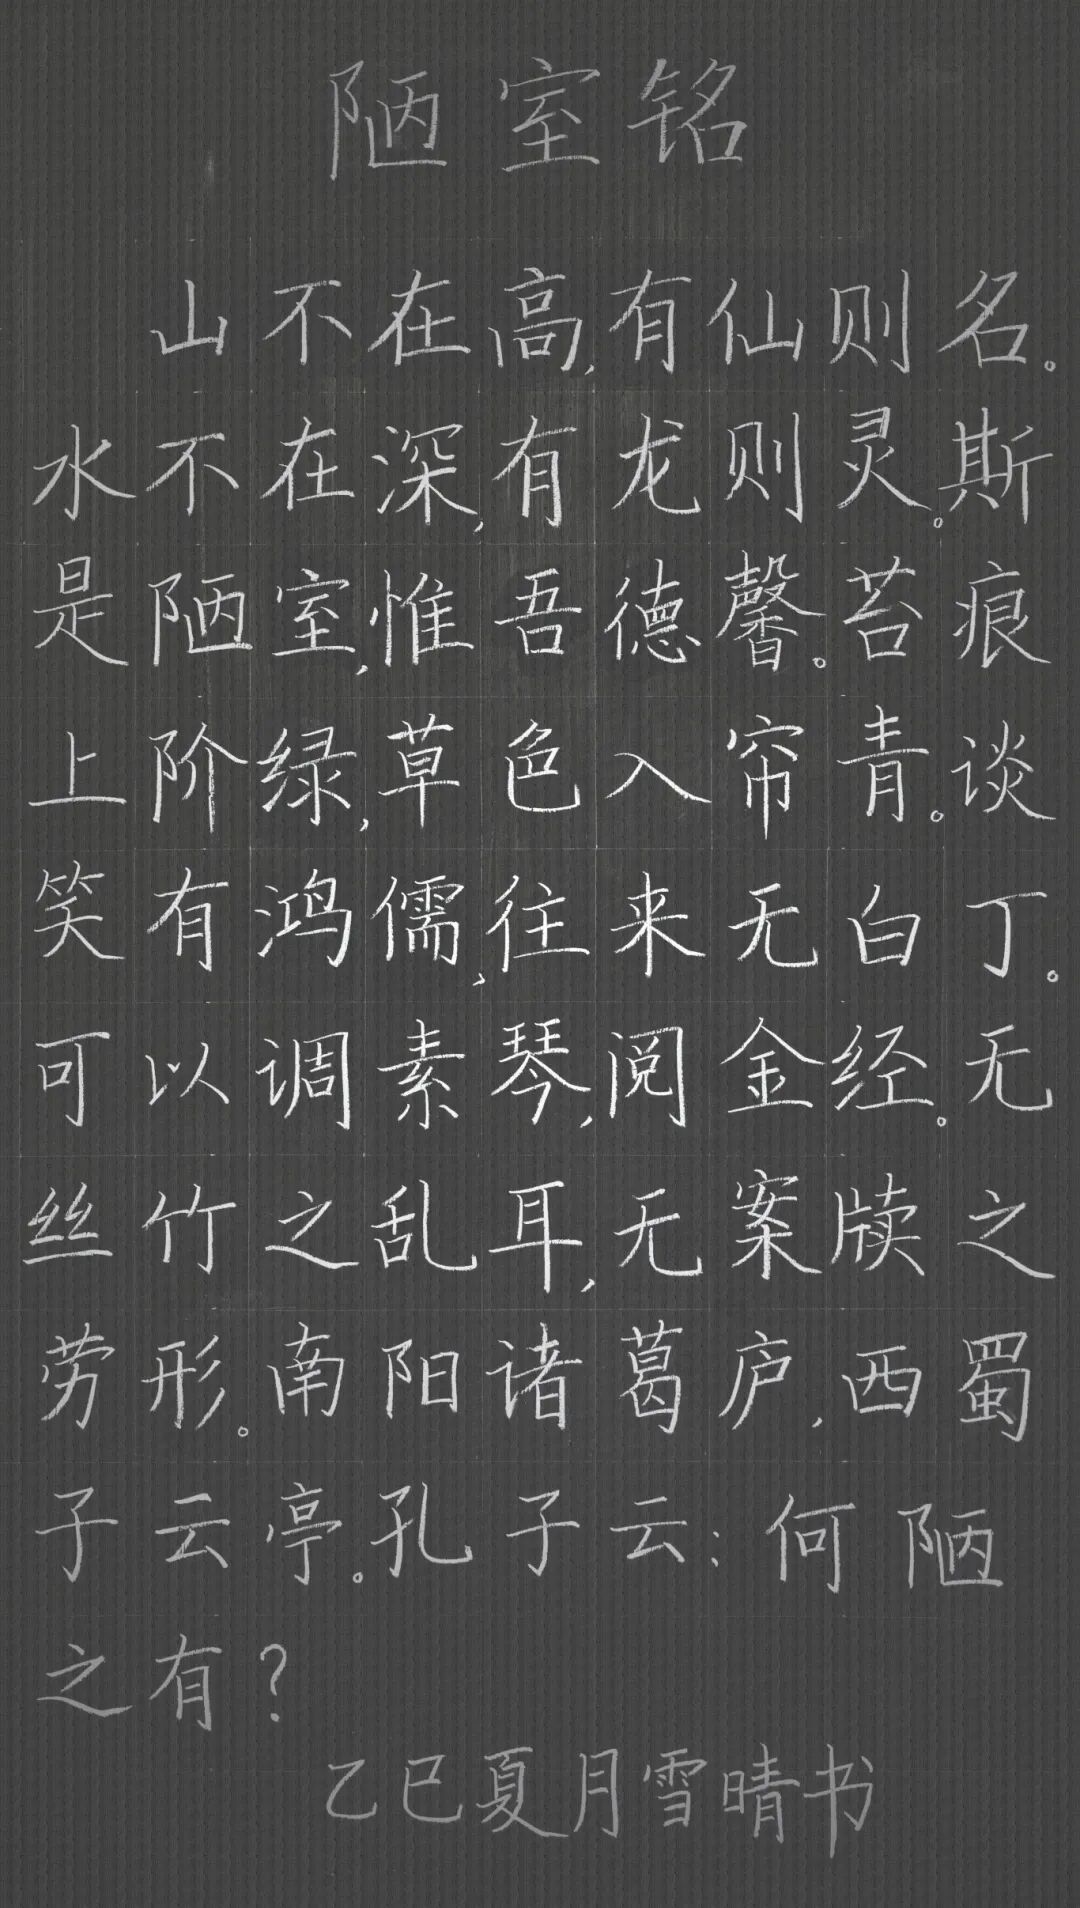 陋室铭
山不在高,有仙则名。
水不在深,有龙则灵。斯
是陋室,惟吾德馨。苔痕
上阶绿,草色入帘青。谈
笑有鸿儒,往来无白丁。
可以调素琴,阅金经。无
丝竹之乱耳,无案牍之
劳形。南阳诸葛庐,西蜀
子云亭。孔子云:何陋
之有?
乙巳夏月雪晴书